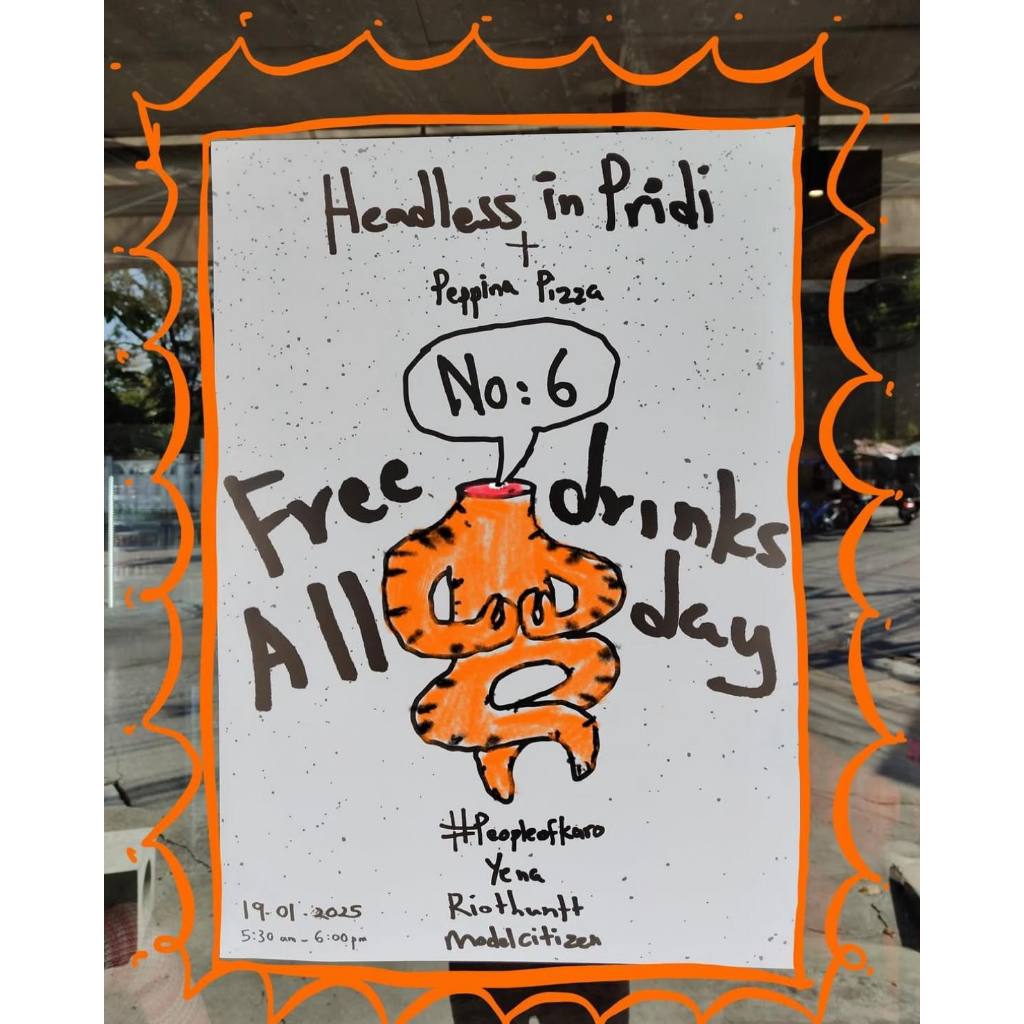 Headless in Pridi
+
Peppina Pizza
No: 6
Free drinks
All day
#Peopleofkaro
Yena
Riothuntt
Modelcitizen
19.01.2025
5:30 am - 6:00 pm